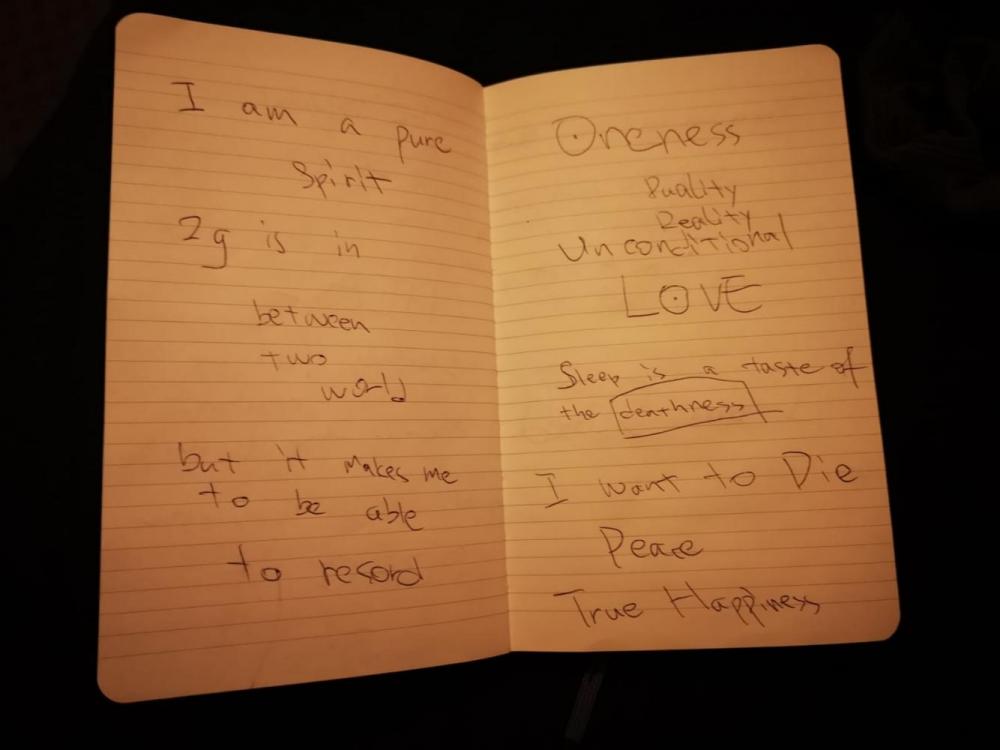 I am a pure
Spirit
2g is in
between
two
world
but it makes me
to be able
to resord
Oneness
Duality
Reality
Unconditional
LOVE
Sleep is a taste of
the deathness
I want to Die
Peace
True Happiness